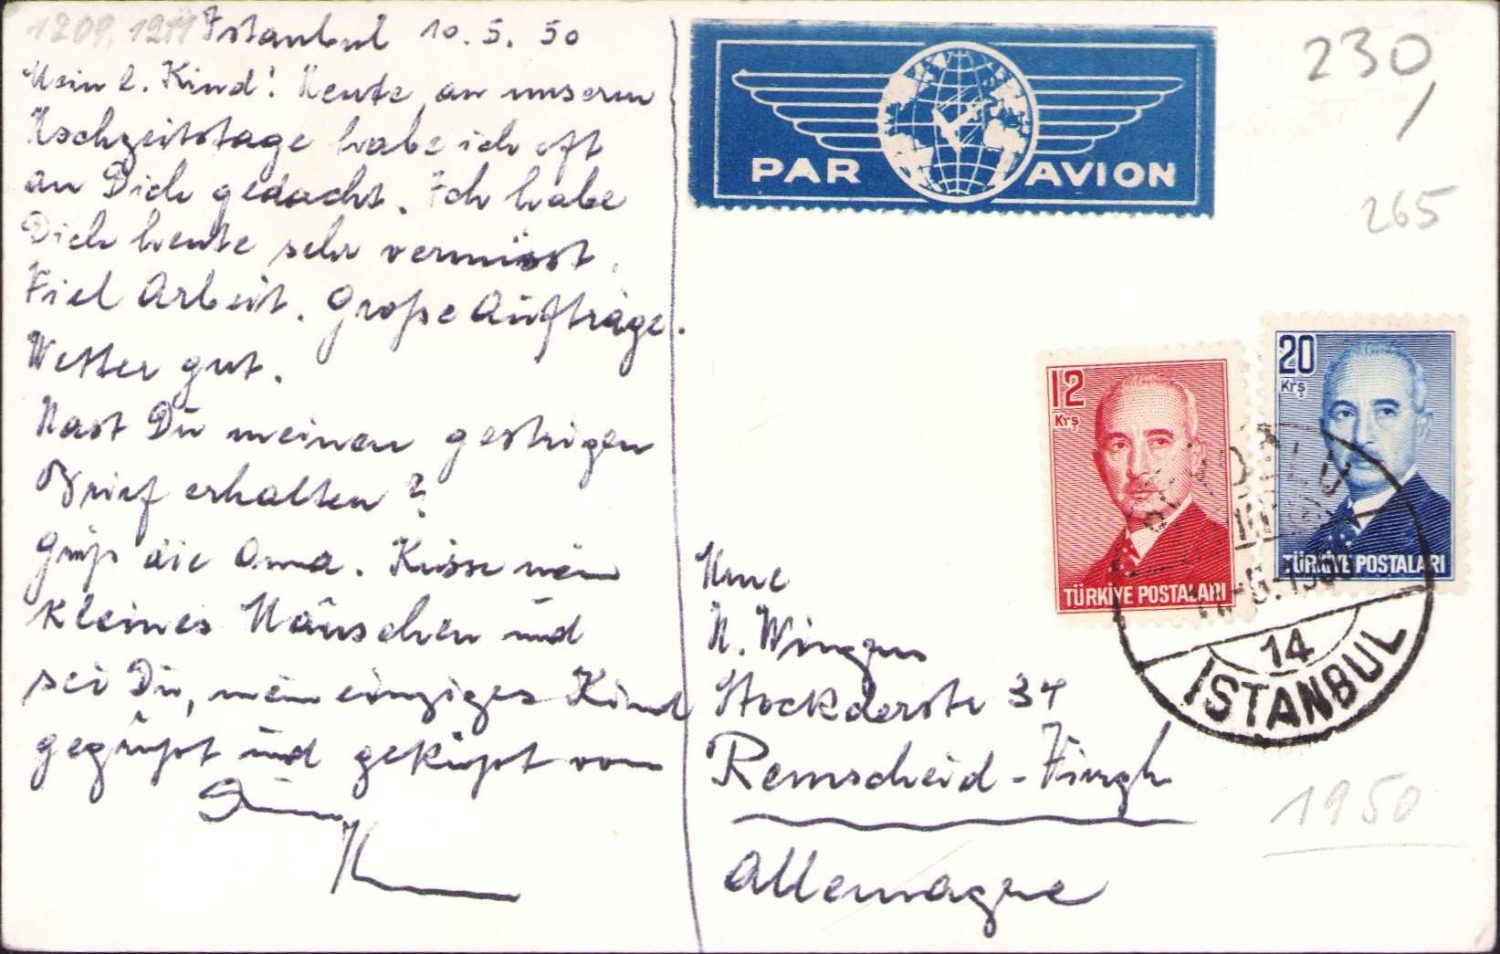 1209, 1211
Istanbul 10.5.50
Mein l. Kind! Heute, an unserem
Hochzeitstage habe ich oft
an Dich gedacht. Ich habe
Dich heute sehr vermisst.
Viel Arbeit. Große Aufträge.
Wetter gut.
Hast Du meinen gestrigen
Brief erhalten?
Grüß die Oma. Küsse mein
kleines Mäuschen und
sei Du, mein einziges Kind
gegrüßt und geküßt von
PAR AVION
230
265
12
Krş
TÜRKİYE POSTALARI
20
Krş
TÜRKİYE POSTALARI
14
ISTANBUL
Stockderstr 34
Remscheid -
Allemagne
1950